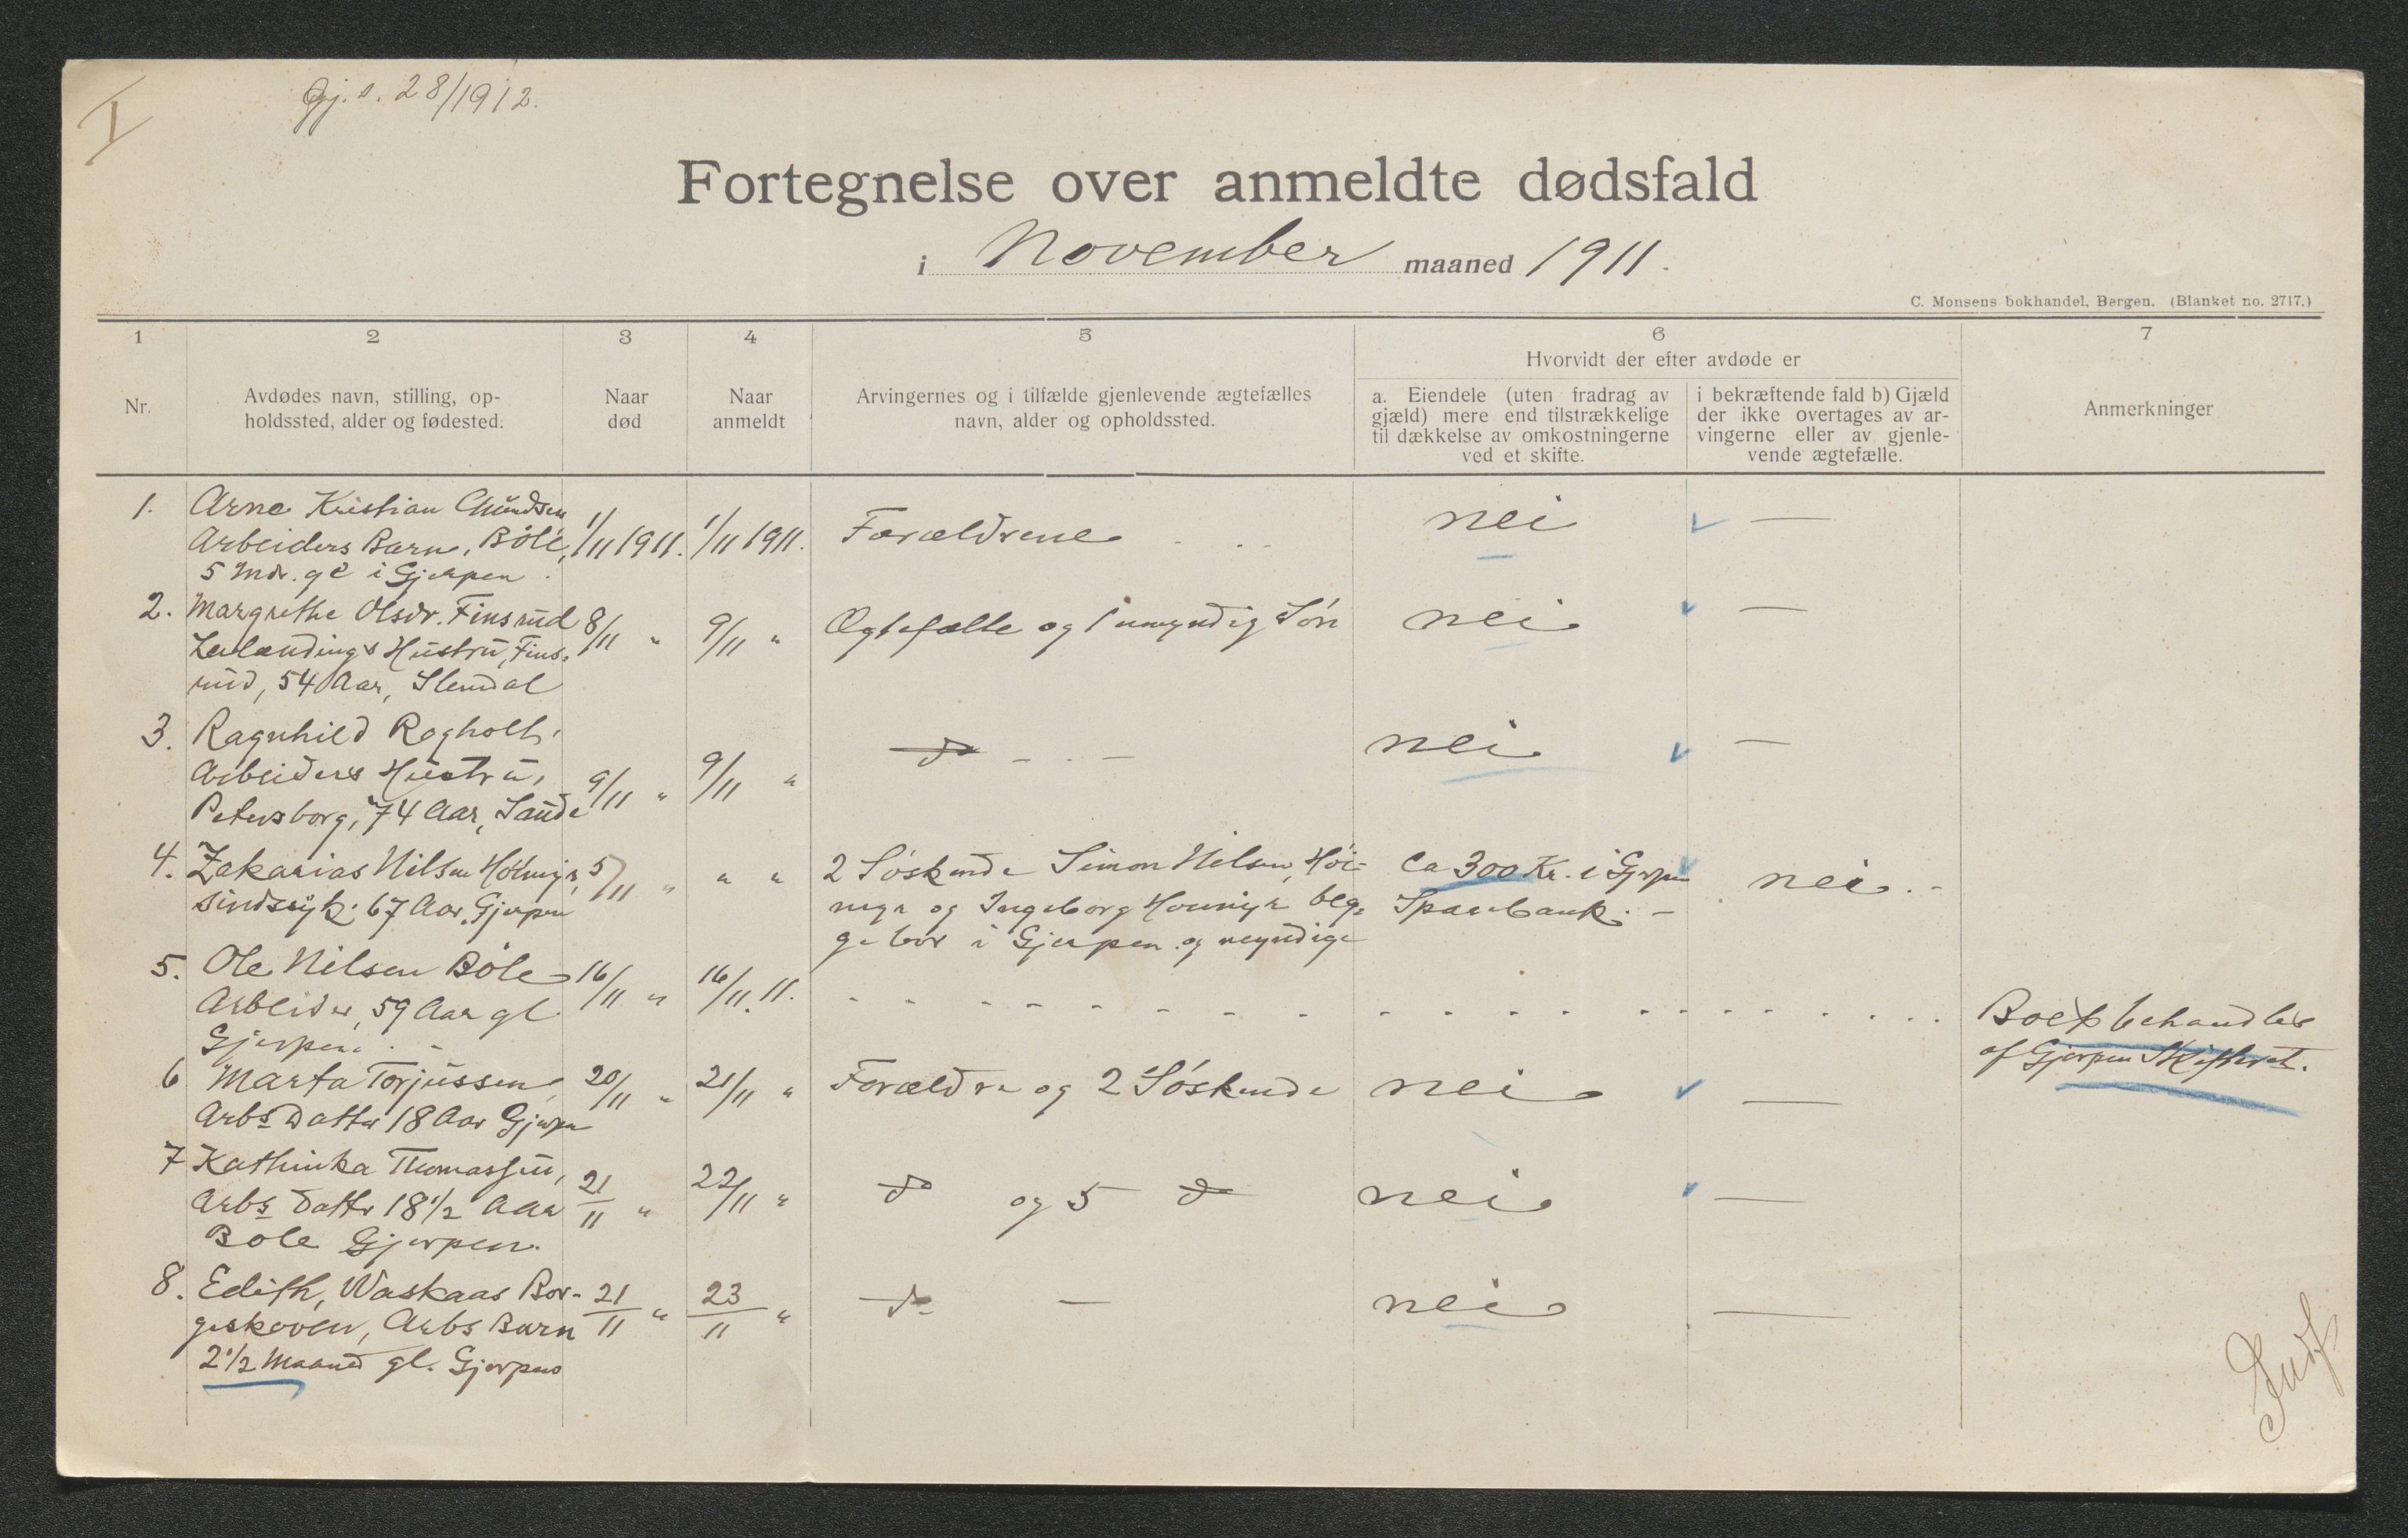 I
Gj. s. 28/1912.
Fortegnelse over anmeldte dødsfald
i November maaned 1911.
C. Monsens bokhandel, Bergen. (Blanket no. 2717.)
1 2 3 4 5 6 7
Hvorvidt der efter avdøde er
Nr.
Avdødes navn, stilling, op-
holdssted, alder og fødested.
Naar
død
Naar
anmeldt
Arvingernes og i tilfælde gjenlevende ægtefælles
navn, alder og opholdssted.
a. Eiendele (uten fradrag av
gjæld) mere end tilstrækkelige
til dækkelse av omkostningerne
ved et skifte.
i bekræftende fald b) Gjæld
der ikke overtages av ar-
vingerne eller av gjenle-
vende ægtefælle.
Anmerkninger
1. Arne Kristian
Arbeiders Barn, Bøle, 1/11 1911. 1/11 1911. Forældrene - - - nei —
5 Mdr. gl i Gjerpen.
2. Margrethe Olsdr. Finsrud 8/11 " 9/11 " Ægtefælle og 1 umyndig Søn nei —
Leilændings Hustru, Fins-
rud, 54 Aar, Slemdal
3. Ragnhild Rogholt,
Arbeiders Hustru, 9/11 " 9/11 " do - - — nei —
Petersborg, 74 Aar, Sande
4. Zakarias Nilsen 5/11 " " " 2 Søskende Simon Nilsen, Høi- Ca 300 Kr. i Gjerpen nei. -
sindssyk. 67 Aar, Gjerpen og Ingeborg beg- Sparebank. -
ge bor i Gjerpen og myndige
5. Ole Nilsen Bøle 16/11 " 16/11 11. - - - - - - - - - - - - - - -
Arbeider, 59 Aar gl. Boet behandles
Gjerpen. - af Gjerpen Skifteret.
6 Marta Torjussen, 20/11 " 21/11 " Forældre og 2 Søskende nei —
Arbs Datter 18 Aar Gjerpen
7 Kathinka Thomassen,
Arbs Datter 18 1/2 Aar 21/11 " 22/11 " do og 5 do nei —
Bøle Gjerpen.
8. Edith, Waskaas Bor- 21/11 " 23/11 " do — nei —
geskoven, Arbs Barn
2 1/2 Maaned gl. Gjerpen